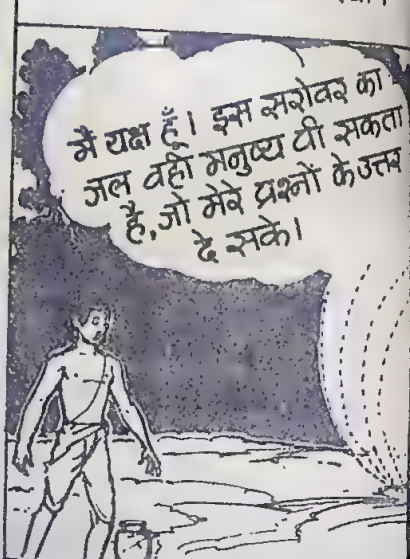 मैं यक्ष हूँ। इस सरोवर का
जल वही मनुष्य पी सकता
है, जो मेरे प्रश्नों के उत्तर
दे सके।